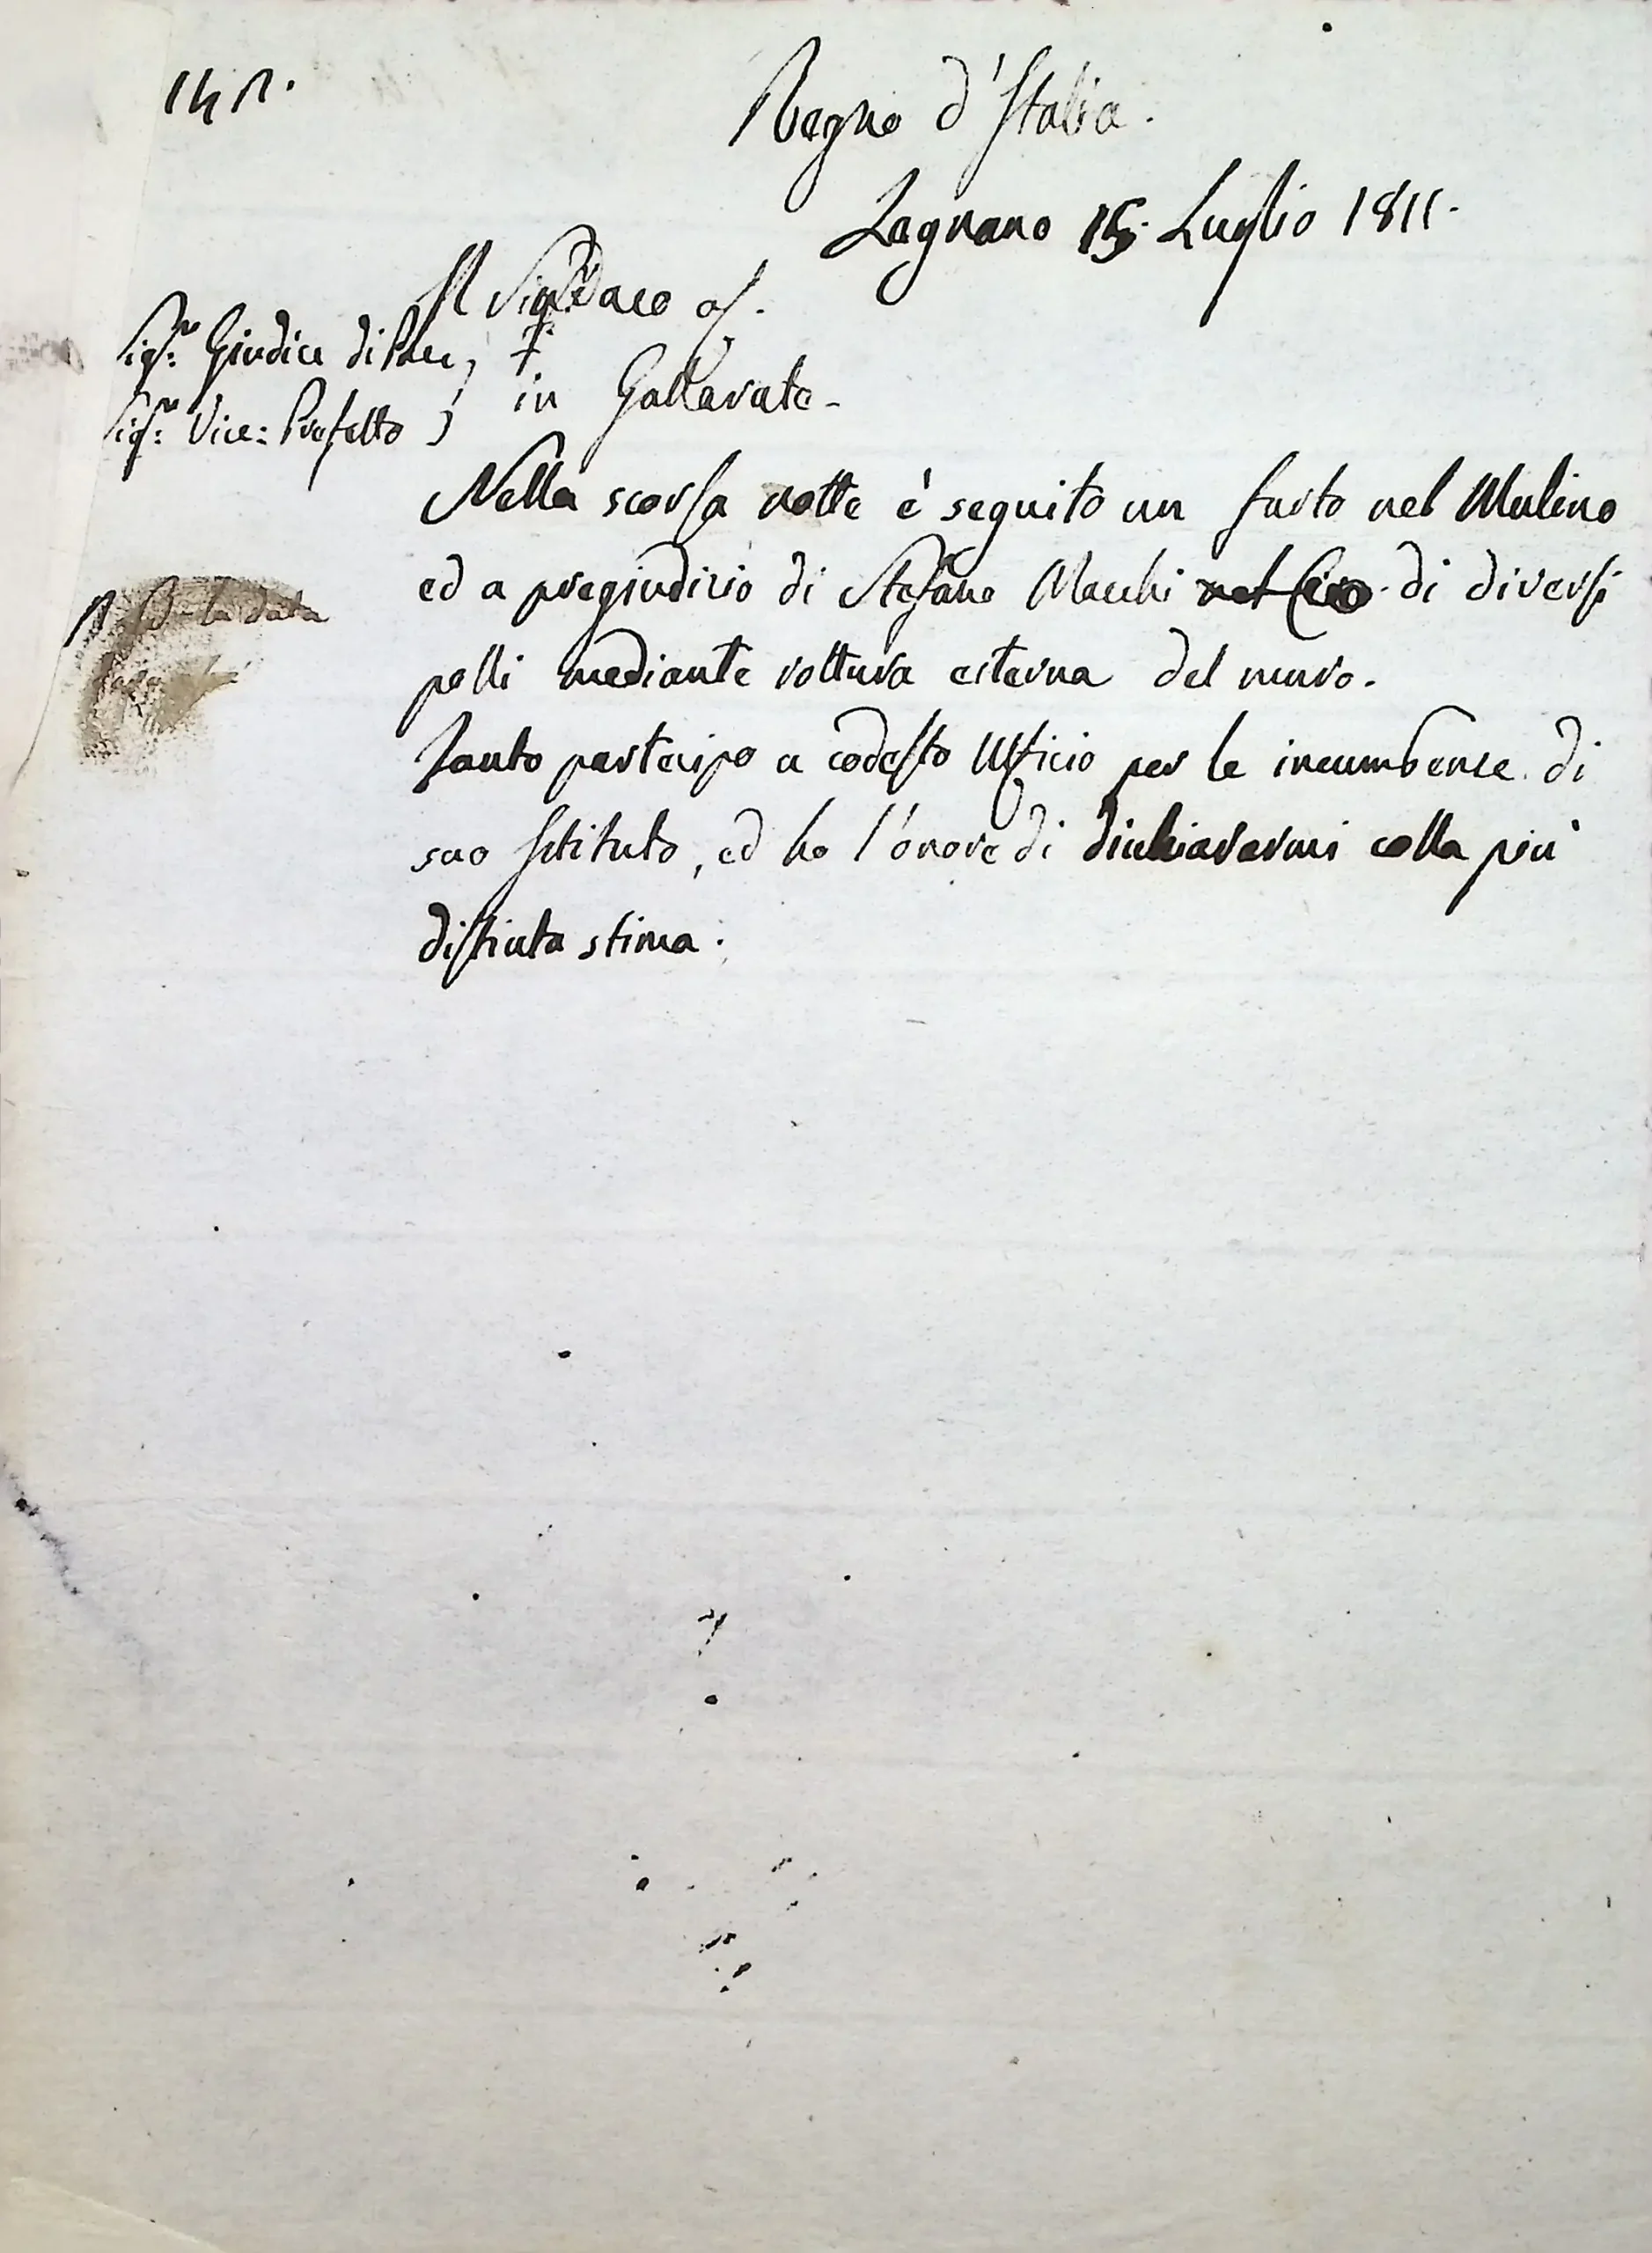 Regno d'Italia.
Legnano 15. Luglio 1811.
Il Sindaco
Sig.r Giudice di Pace
in Gallarate
Sig.r Vice=Prefetto
Nella scorsa notte è seguito un furto nel Mulino
ed a pregiudizio di Stefano Macchi nel di diversi
pelli mediante rottura esterna del muro.
Tanto partecipo a codesto Ufficio per le incumbenze di
suo Istituto, ed ho l'onore di dichiararmi colla più
distinta stima.
la data